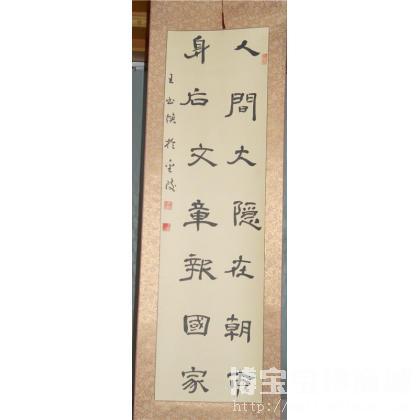 人間大隱在朝市
身后文章報國家
王
於金陵
博宝
http://